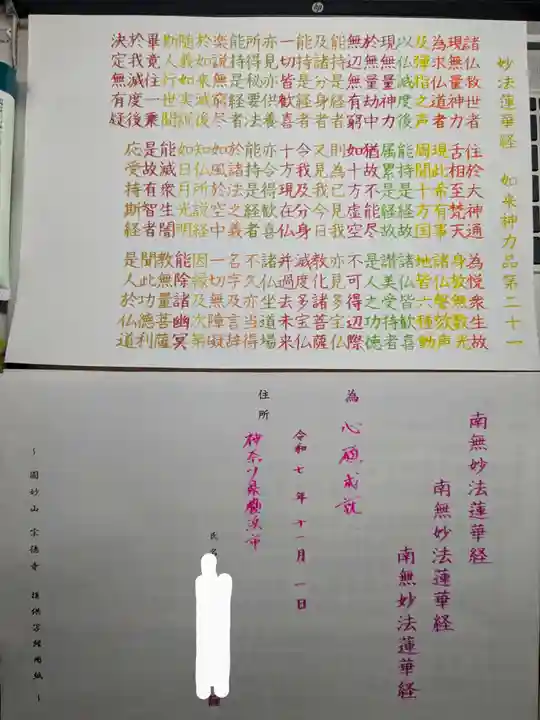 妙法蓮華経 如来神力品第二十一
諸仏救世者 住於大神通 為悦衆生故
現無量神力 舌相至梵天 身放無数光
為求仏道者 現此希有事 諸仏謦欬声
及弾指之声 周聞十方国 地皆六種動
以仏滅度後 能持是経故 諸仏皆歓喜
現無量神力 属累是経故 讃美受持者
於無量劫中 猶故不能尽 是人之功徳
無辺無有窮 如十方虚空 不可得辺際
能持是経者 則為已見我 亦見多宝仏
及諸分身者 又見我今日 教化諸菩薩
能持是経者 令我及分身 滅度多宝仏
一切皆歓喜 十方現在仏 并過去未来
亦見亦供養 亦令得歓喜 諸仏坐道場
所得秘要法 能持是経者 不久亦当得
能持是経者 於諸法之義 名字及言辞
楽説無窮尽 如風於空中 一切無障礙
於如来滅後 知仏所説経 因縁及次第
随義如実説 如日月光明 能除諸幽冥
斯人行世間 能滅衆生闇 教無量菩薩
畢竟住一乗 是故有智者 聞此功徳利
於我滅度後 応受持斯経 是人於仏道
決定無有疑
南無妙法蓮華経
南無妙法蓮華経
南無妙法蓮華経
為 心願成就
令和七年十一月一日
住所 神奈川県横浜市
氏名
～ 圓妙山 宗徳寺 謹供写経用紙 ～